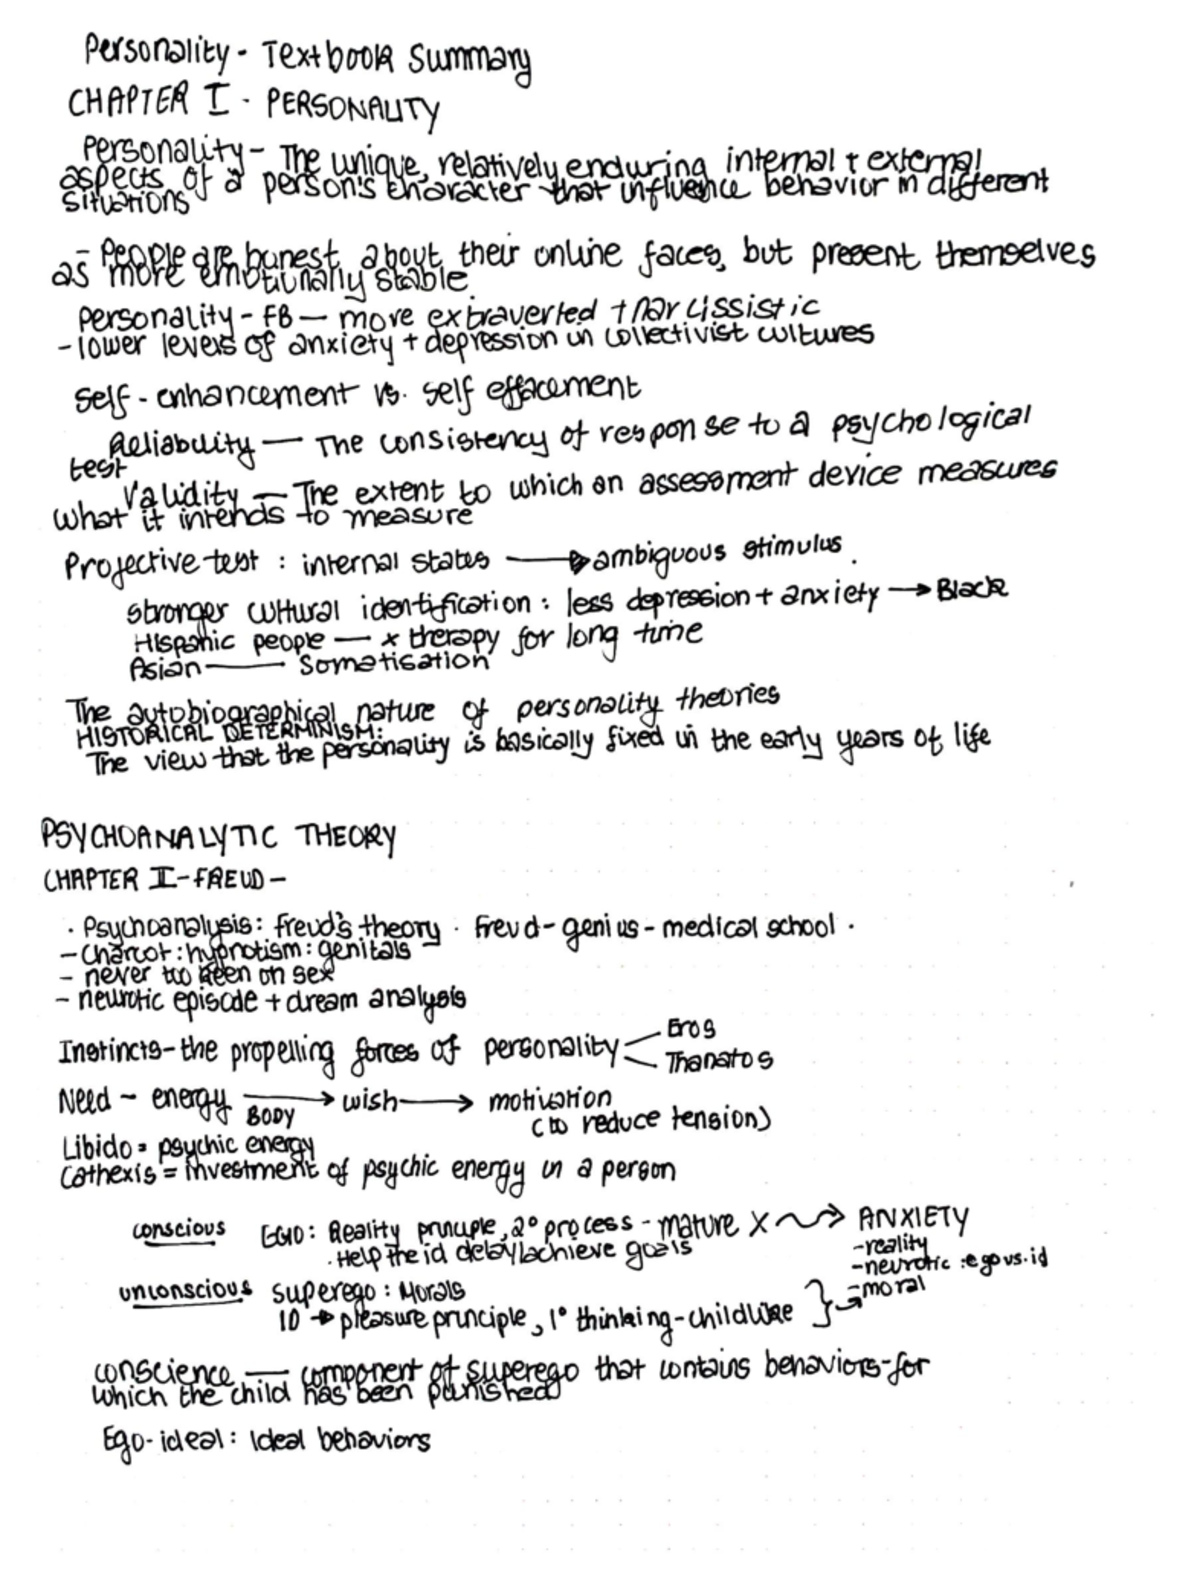 Personality - Textbook Summary
CHAPTER I - PERSONALITY
Personality - The unique, relatively enduring internal + external
aspects of a person's character that influence behavior in different
situations
- People are honest about their online faces, but present themselves
as more emotionally stable.
Personality - FB — more extraverted + narcissistic
- lower levels of anxiety + depression in collectivist cultures
Self - enhancement vs. self effacement
Reliability — The consistency of response to a psychological
test
Validity — The extent to which an assessment device measures
what it intends to measure
Projective test : internal states → ambiguous stimulus.
stronger cultural identification : less depression + anxiety → Black
Hispanic people — x therapy for long time
Asian — Somatisation
The autobiographical nature of personality theories
HISTORICAL DETERMINISM:
The view that the personality is basically fixed in the early years of life
PSYCHOANALYTIC THEORY
CHAPTER II - FREUD -
· Psychoanalysis: freud's theory · Freud - genius - medical school ·
- Charcot : hypnotism : genitals
- never too keen on sex
- neurotic episode + dream analysis
Instincts - the propelling forces of personality < Eros
Thanatos
Need - energy → wish → motivation
BODY (to reduce tension)
Libido = psychic energy
Cathexis = investment of psychic energy in a person
conscious EGO: Reality principle, 2° process - mature X → ANXIETY
· Help the id delay/achieve goals - reality
- neurotic : ego vs. id
unconscious superego : Morals - moral
ID → pleasure principle, 1° thinking - childlike } →
conscience — component of superego that contains behaviors - for
which the child has been punished
Ego - ideal : Ideal behaviors